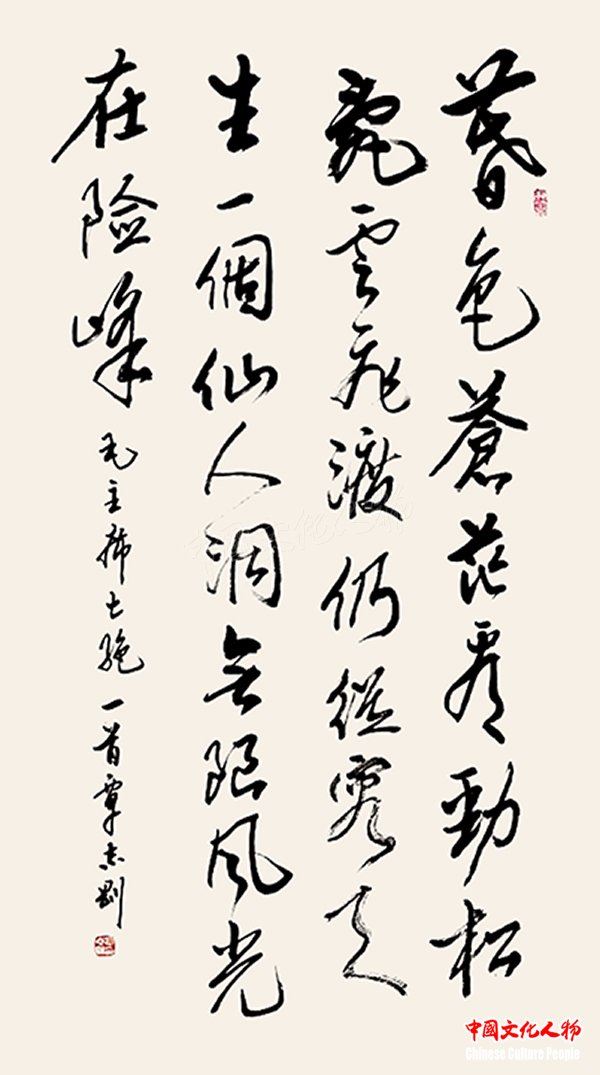 暮色蒼茫看勁松
亂雲飛渡仍從容天
生一個仙人洞無限風光
在險峰
毛主席七絕一首覃志剛
中國文化人物
Chinese Culture People